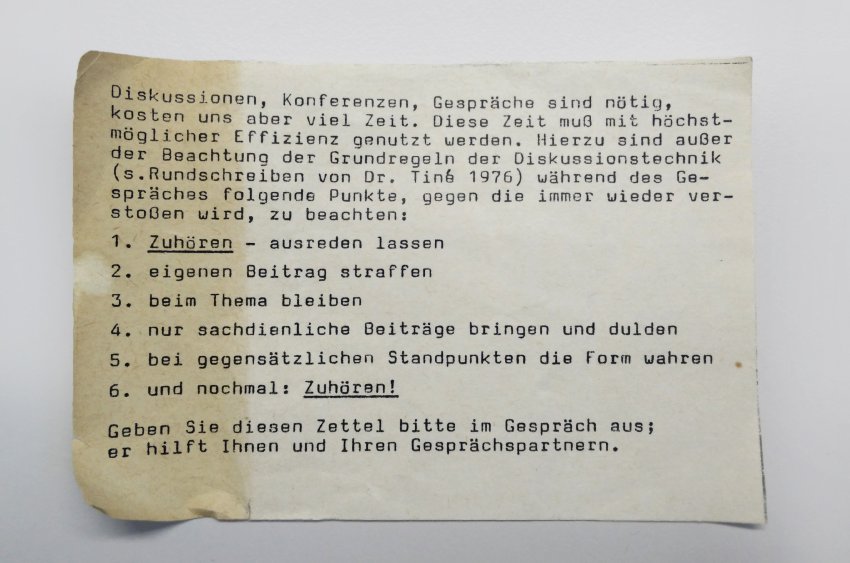 Diskussionen, Konferenzen, Gespräche sind nötig,
kosten uns aber viel Zeit. Diese Zeit muß mit höchst-
möglicher Effizienz genutzt werden. Hierzu sind außer
der Beachtung der Grundregeln der Diskussionstechnik
(s.Rundschreiben von Dr. Tiné 1976) während des Ge-
spräches folgende Punkte, gegen die immer wieder ver-
stoßen wird, zu beachten:
1. Zuhören - ausreden lassen
2. eigenen Beitrag straffen
3. beim Thema bleiben
4. nur sachdienliche Beiträge bringen und dulden
5. bei gegensätzlichen Standpunkten die Form wahren
6. und nochmal: Zuhören!
Geben Sie diesen Zettel bitte im Gespräch aus;
er hilft Ihnen und Ihren Gesprächspartnern.